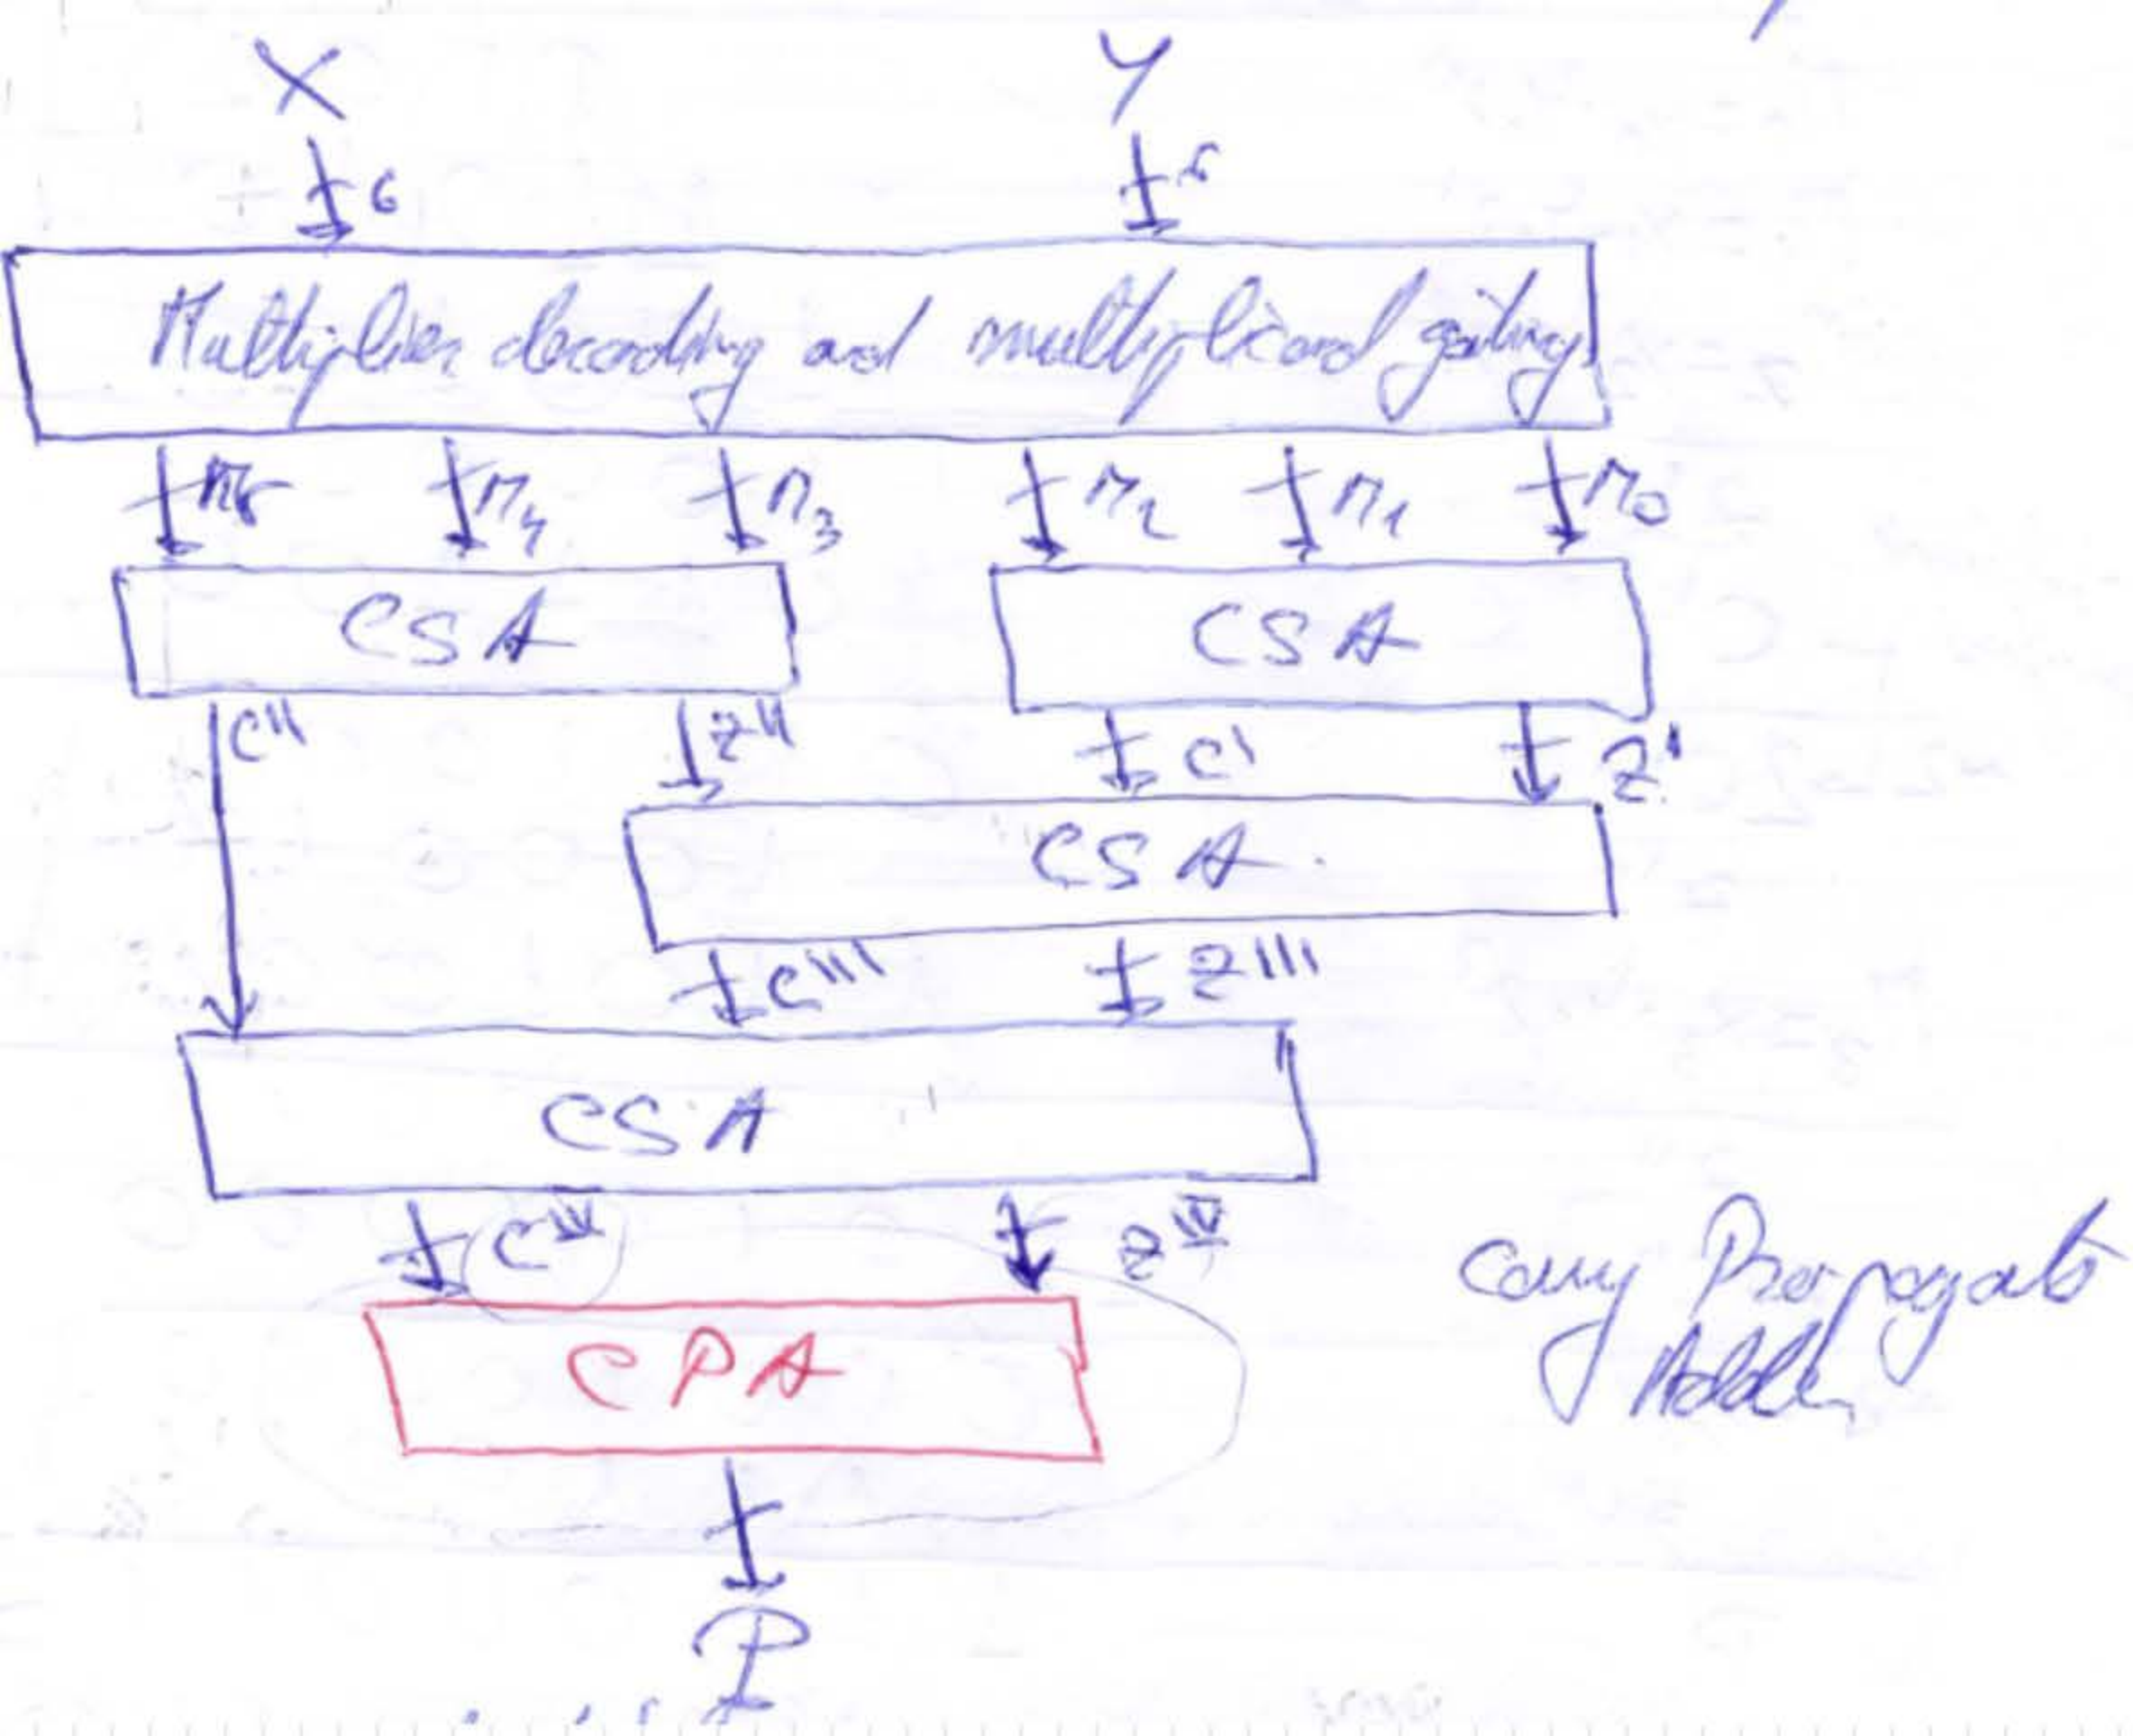 X Y
6 6
Multiplier decoding and multiplicand gating
M5 M4 M3 M2 M1 M0
CSA CSA
C'' Z'' C' Z'
CSA
C''' Z'''
CSA
C^IV Z^IV
CPA
Carry Propagate
Adder
P